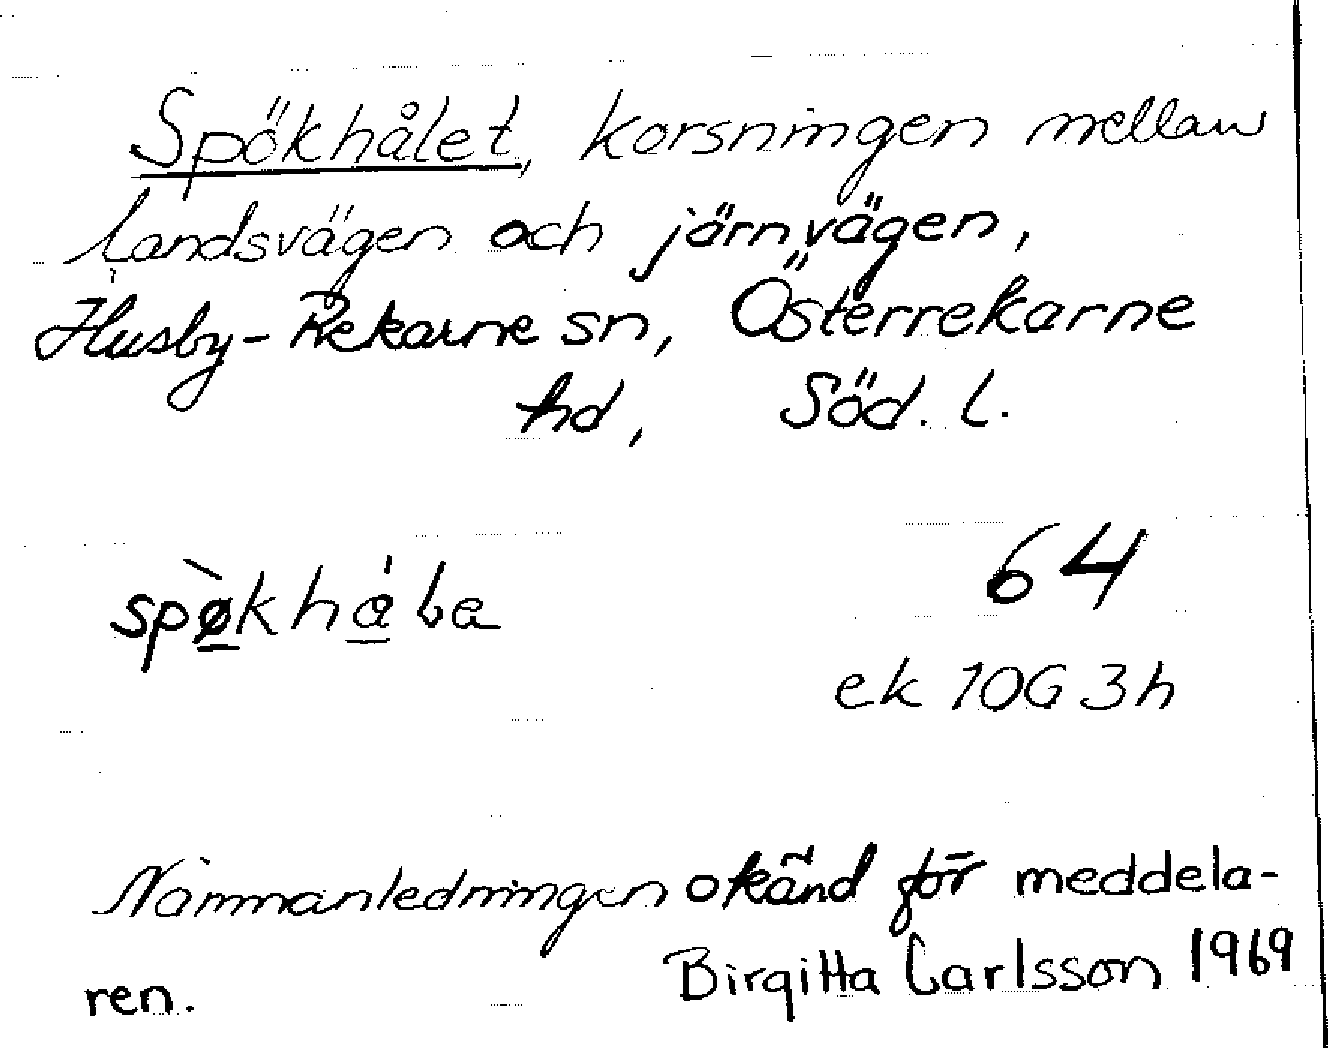 Spökhålet, korsningen mellan
landsvägen och järnvägen,
Husby-Rekarne sn, Österrekarne
hd, Söd. l.
64
ek 10G 3h
Namnanledningen okänd för meddela-
ren. Birgitta Carlsson 1969